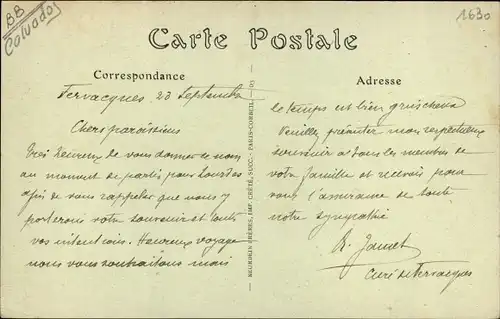 BB
Calvados
1630
Carte Postale
Correspondance
Adresse
Fervacques 23 Septembre
Chers paroissiens
Très heureux de vous donner de nous
au moment de partir pour Lourdes
afin de vous rappeler que nous y
porterons votre souvenir et toutes
vos intentions. Heureux voyage
nous vous souhaitons mais
le temps est bien grincheux
Veuillez présenter mon respectueux
souvenir à tous les membres de
votre famille et recevoir pour
vous l'assurance de toute
notre sympathie
Curé de Fervacques
NEURDEIN FRÈRES, IMP. CRÉTÉ, SUCC. - PARIS-CORBEIL